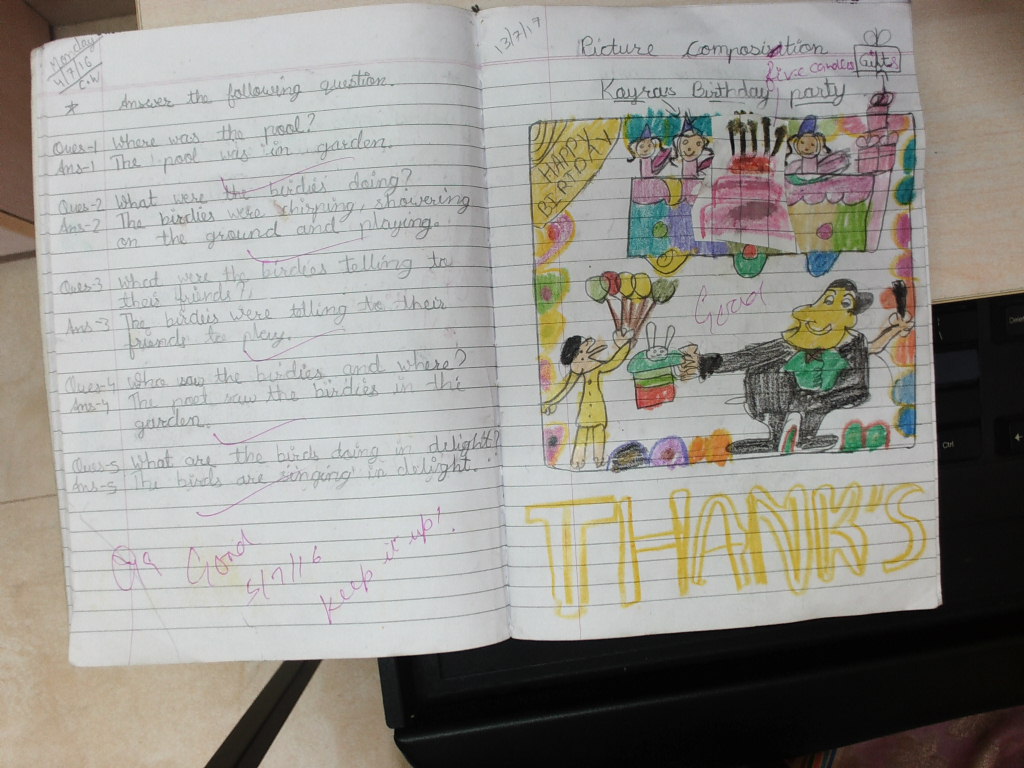 Monday
4/7/16
C.W
* Answer the following question.
Ques-1 Where was the pool?
Ans-1 The pool was in garden.
Ques-2 What were the birdies doing?
Ans-2 The birdies were chirping, showering
on the ground and playing.
Ques-3 What were the birdies telling to
their friends?
Ans-3 The birdies were telling to their
friends to play.
Ques-4 Who saw the birdies and where?
Ans-4 The poet saw the birdies in the
garden.
Ques-5 What are the birds doing in delight?
Ans-5 The birds are singing in delight.
Good
5/7/16
keep it up!
13/7/17
Picture Composition
five candles
Gifts
Kayras Birthday party
HAPPY
BIRTDAY
Good
THANK'S